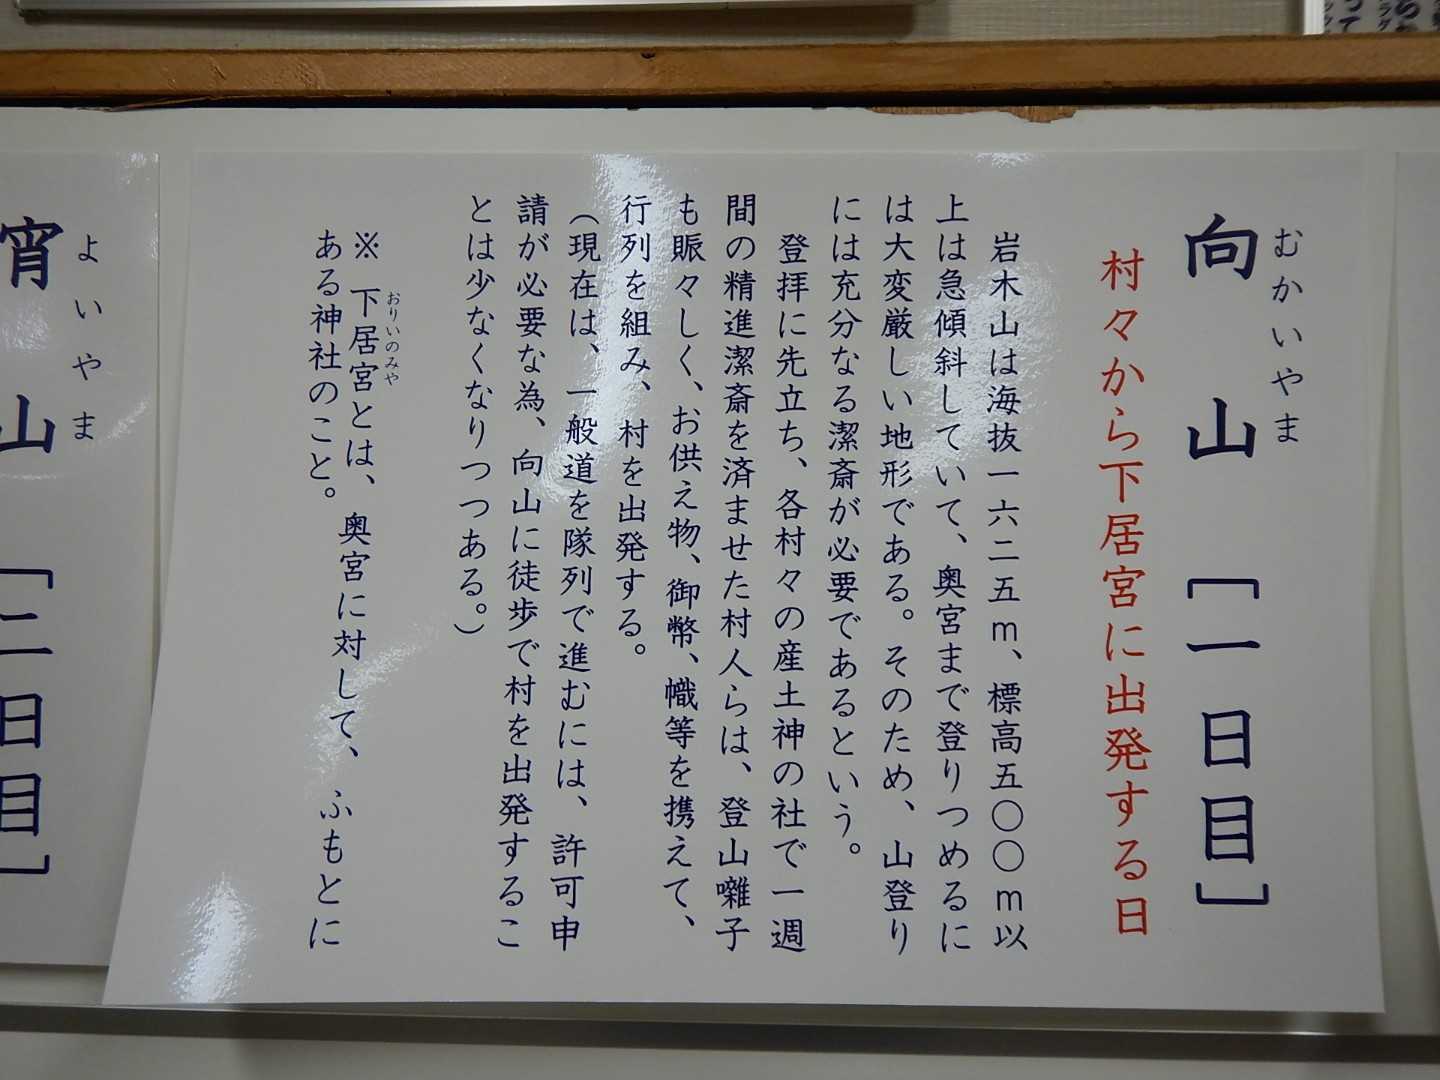 向山 [一日目]
むかいやま
村々から下居宮に出発する日
岩木山は海抜一六二五m、標高五〇〇m以
上は急傾斜していて、奥宮まで登りつめるに
は大変厳しい地形である。そのため、山登り
には充分なる潔斎が必要であるという。
登拝に先立ち、各村々の産土神の社で一週
間の精進潔斎を済ませた村人らは、登山囃子
も賑々しく、お供え物、御幣、幟等を携えて、
行列を組み、村を出発する。
(現在は、一般道を隊列で進むには、許可申
請が必要な為、向山に徒歩で村を出発するこ
とは少なくなりつつある。)
※下居宮とは、奥宮に対して、ふもとに
おりいのみや
ある神社のこと。
宵山 [二日目]
よいやま